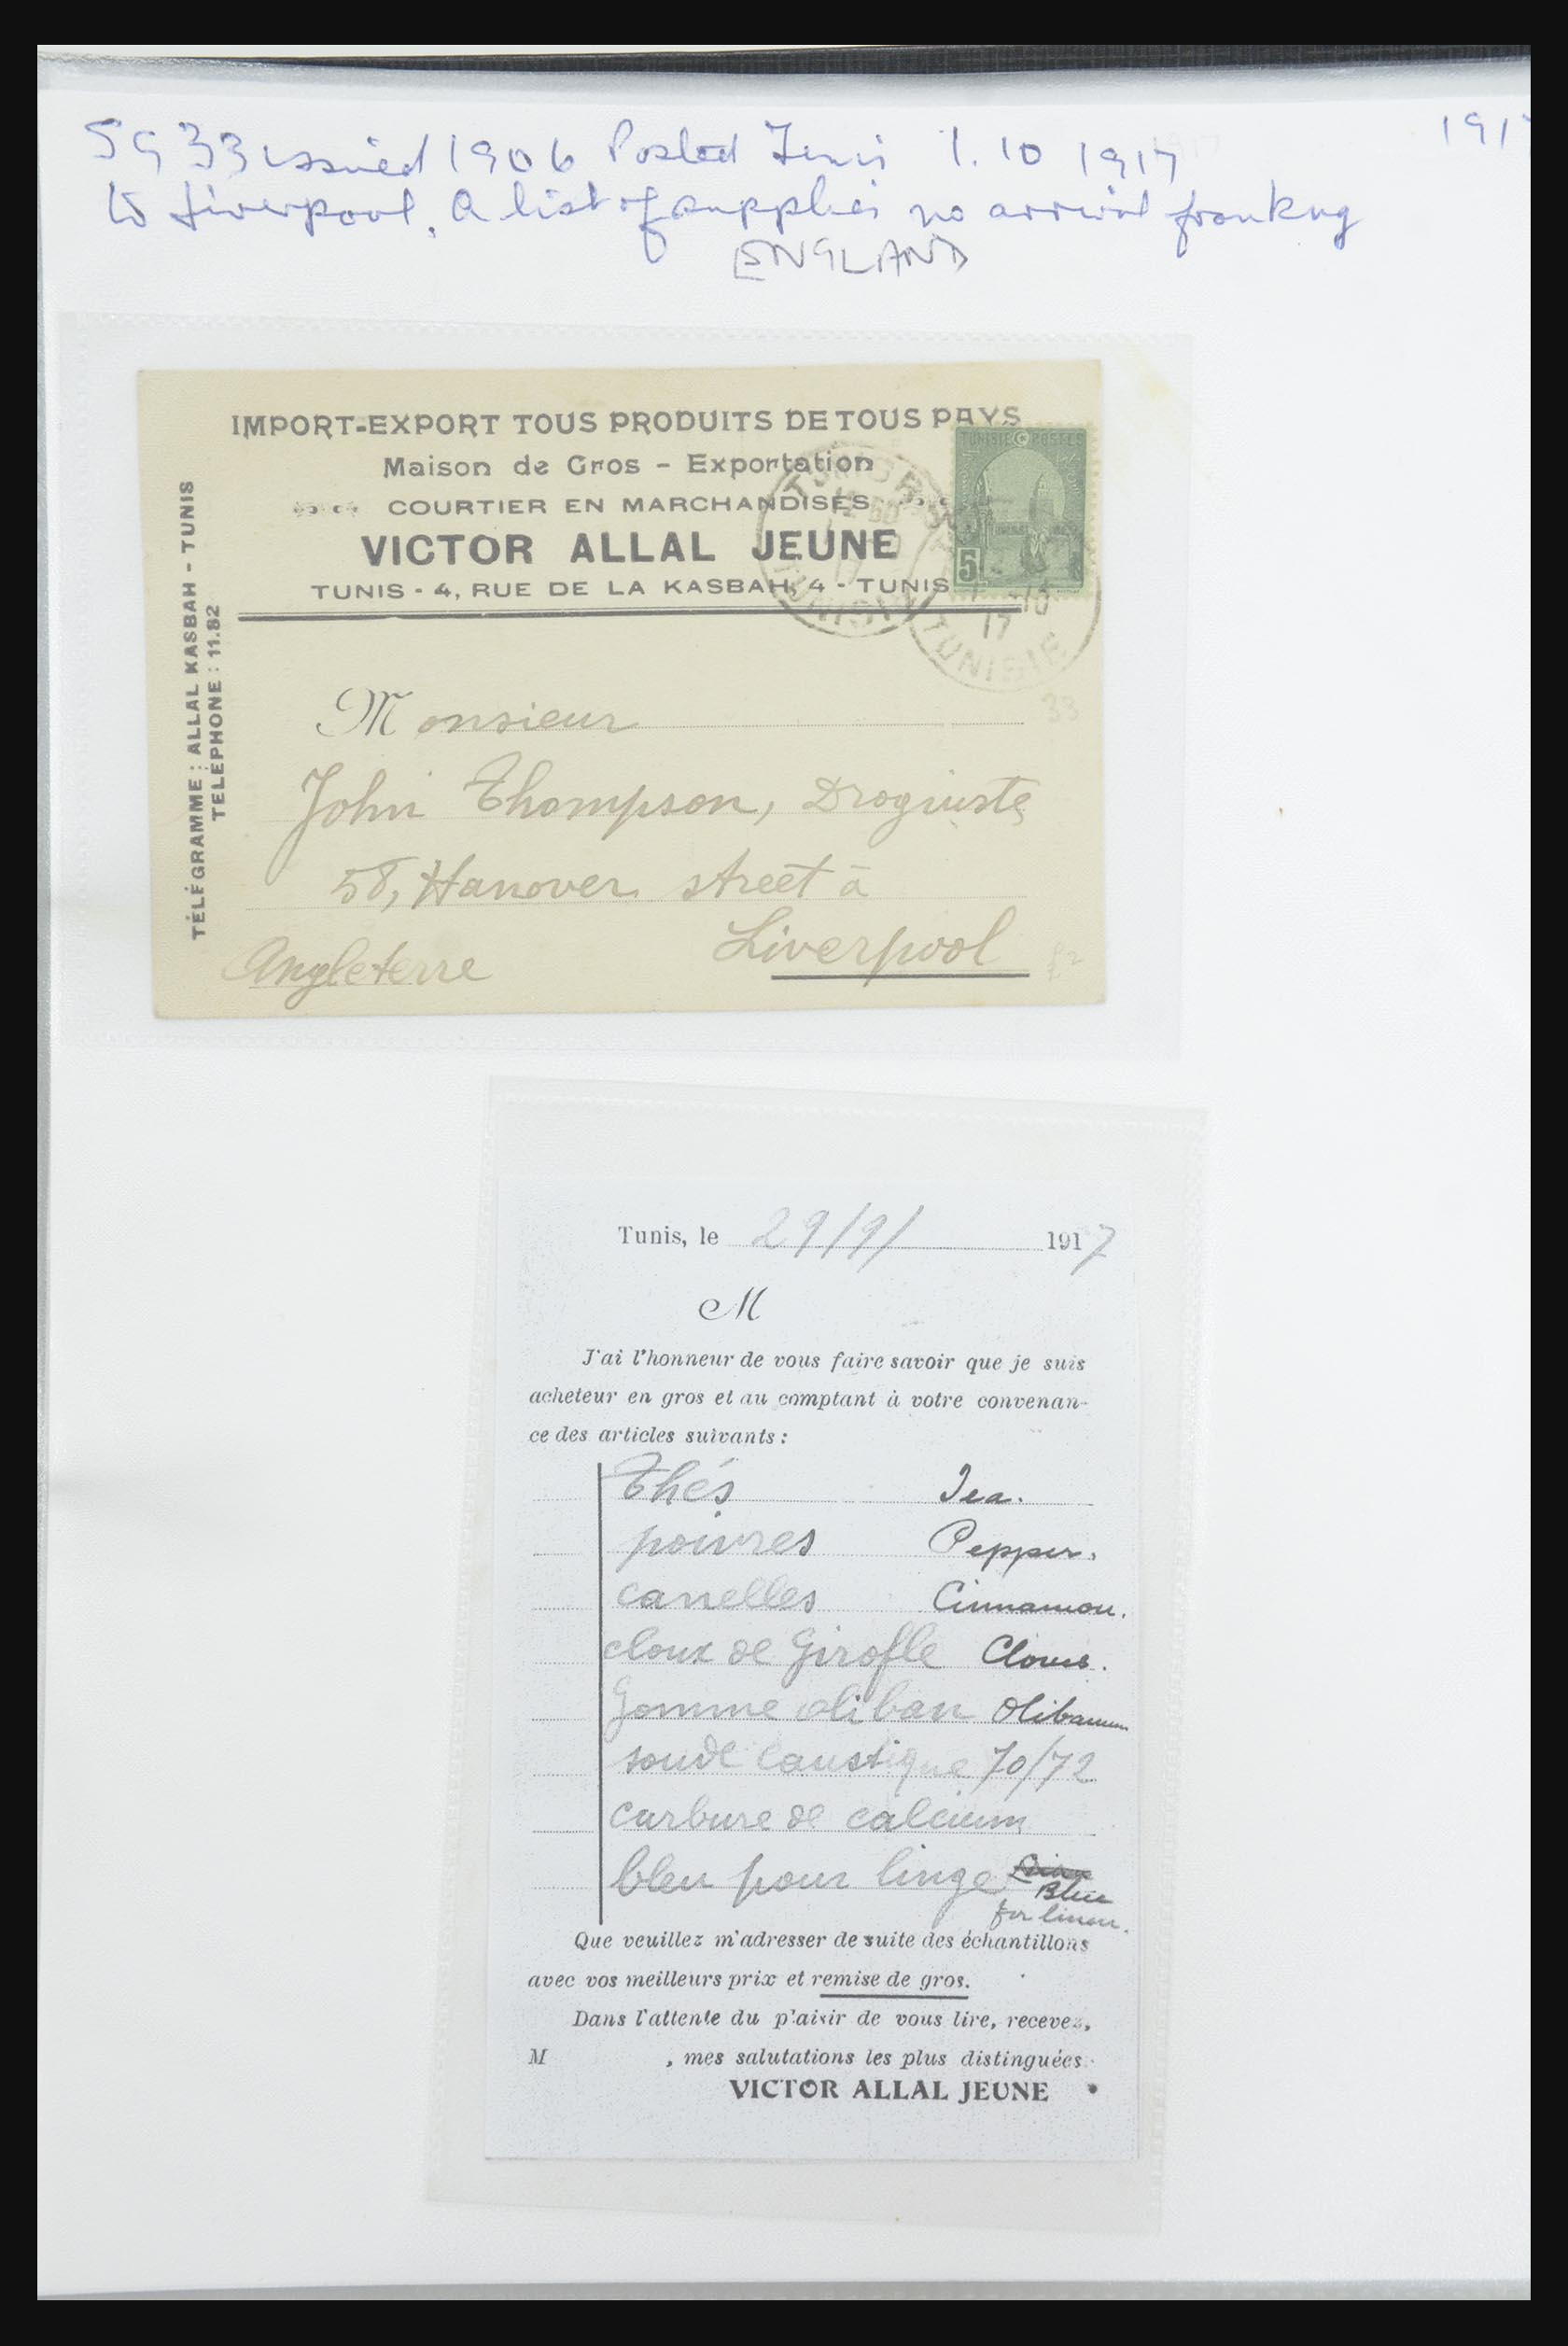 SG 33 issued 1906 Posted Tunis 1. 10 1917
191
to Liverpool. A list of supplies no arrival franking
ENGLAND
IMPORT-EXPORT TOUS PRODUITS DE TOUS PAYS
Maison de Gros - Exportation
COURTIER EN MARCHANDISES
VICTOR ALLAL JEUNE
TUNIS - 4, RUE DE LA KASBAH, 4 - TUNIS
TÉLÉGRAMME : ALLAL KASBAH - TUNIS
TÉLÉPHONE : 11.82
TUNISIE POSTES
5
1 -10
17
TUNISIE
33
Monsieur
John Thompson, Droguiste
58, Hanover street à
Liverpool
Angleterre
£2
Tunis, le 29/9/ 1917
M
J'ai l'honneur de vous faire savoir que je suis
acheteur en gros et au comptant à votre convenan-
ce des articles suivants :
Thés Tea.
poivres Pepper.
canelles Cinnamon.
cloux de Girofle Cloves.
Gomme oliban Olibanum
soude caustique 70/72
carbure de calcium
bleu pour linge Blue
for linen.
Que veuillez m'adresser de suite des échantillons
avec vos meilleurs prix et remise de gros.
Dans l'attente du plaisir de vous lire, recevez,
M , mes salutations les plus distinguées.
VICTOR ALLAL JEUNE